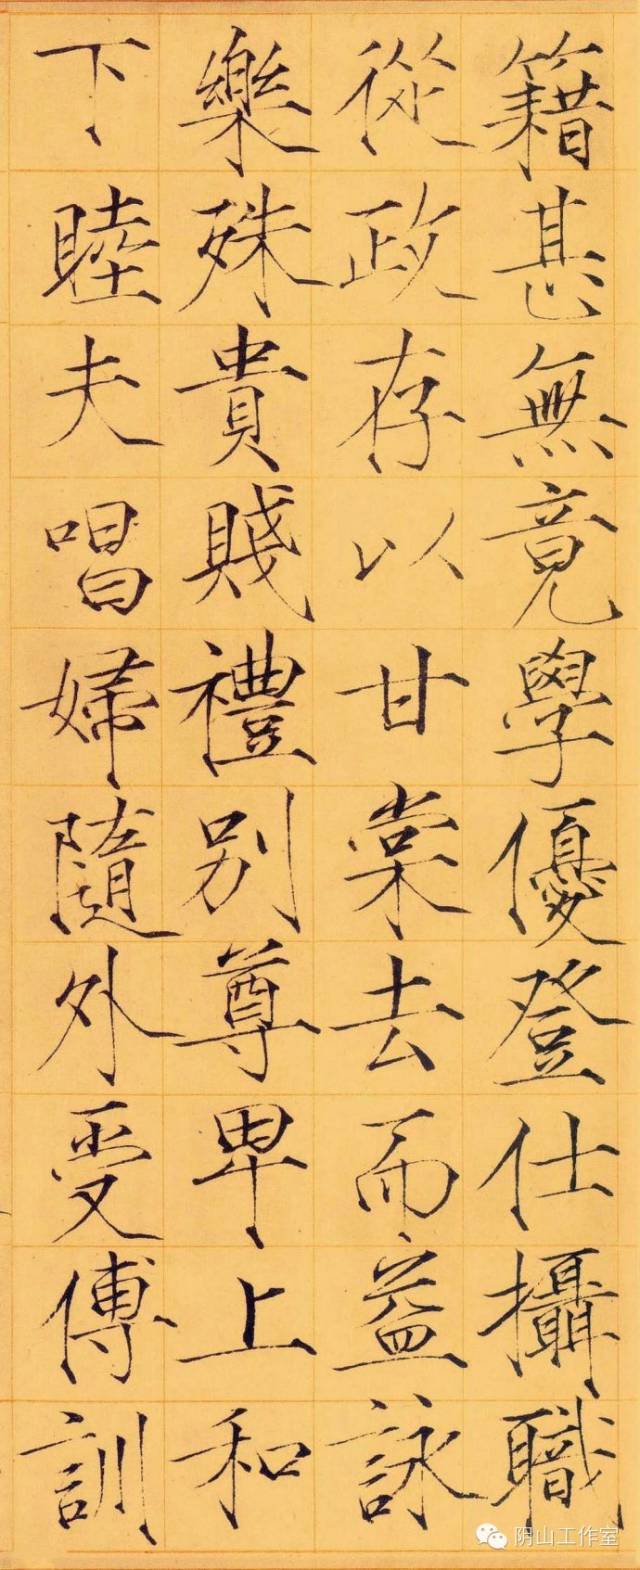 籍甚無竟學優登仕攝職
從政存以甘棠去而益詠
樂殊貴賤禮別尊卑上和
下睦夫唱婦隨外受傅訓
阴山工作室